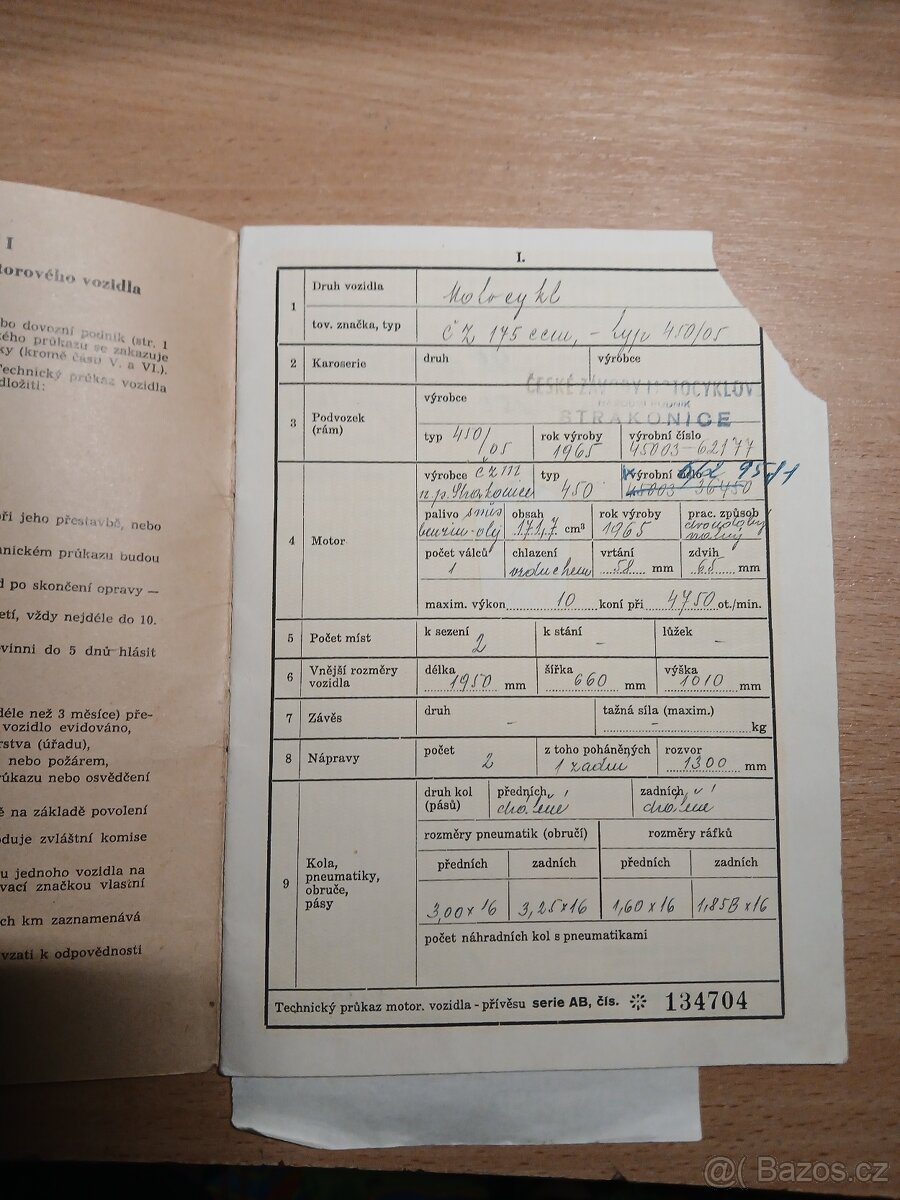 I
torového vozidla
bo dovozní podnik (str. 1
kého průkazu se zakazuje
ky (kromě částí V. a VI.).
Technický průkaz vozidla
dložiti:
při jeho přestavbě, nebo
hnickém průkazu budou
d po skončení opravy —
etí, vždy nejdéle do 10.
vinni do 5 dnů hlásit
déle než 3 měsíce) pře-
vozidlo evidováno,
rstva (úřadu),
nebo požárem,
růkazu nebo osvědčení
ě na základě povolení
oduje zvláštní komise
u jednoho vozidla na
vací značkou vlastní
ch km zaznamenává
vzati k odpovědnosti
I.
1 Druh vozidla Motocykl
tov. značka, typ ČZ 175 ccm, - typ 450/05
2 Karoserie druh výrobce
ČESKÉ ZÁVODY MOTOCYKLOV
NÁRODNÍ PODNIK
STRAKONICE
3 Podvozek (rám) výrobce
typ 450/05 rok výroby 1965 výrobní číslo 45003-62177
4 Motor výrobce ČZM n.p. Strakonice typ 450 výrobní číslo 45003 36450
palivo směs benzin-olej obsah 171,7 cm³ rok výroby 1965 prac. způsob
počet válců 1 chlazení vzduchem vrtání 58 mm zdvih 65 mm
maxim. výkon 10 koní při 4750 ot./min.
5 Počet míst k sezení 2 k stání - lůžek -
6 Vnější rozměry vozidla délka 1950 mm šířka 660 mm výška 1010 mm
7 Závěs druh - tažná síla (maxim.) - kg
8 Nápravy počet 2 z toho poháněných 1 zadní rozvor 1300 mm
9 Kola, pneumatiky, obruče, pásy
druh kol (pásů) předních drátěné zadních drátěné
rozměry pneumatik (obručí) rozměry ráfků
předních zadních předních zadních
3,00 x 16 3,25 x 16 1,60 x 16 1,85B x 16
počet náhradních kol s pneumatikami
Technický průkaz motor. vozidla - přívěsu serie AB, čís. ※ 134704
@( Bazoš.cz